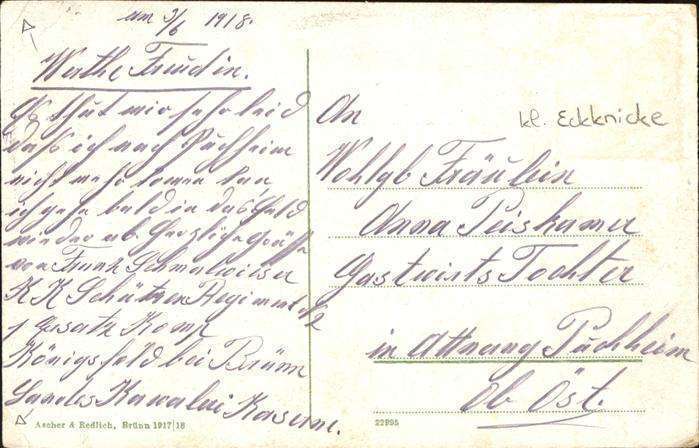 am 3/6 1918.
Werthe Freudin.
Es thut mir sehr leid
daß ich nach Puchheim
nicht mehr komen kan,
ich gehe bald in das Feld
wieder ab Herzlige Grüße
von Frank Schmalwieser
K K Schützen Regiment No 2
1 Ersatz Komp
Königsfeld bei Brünn
Landes Kawaleri Kaserne.
Ascher & Redlich, Brünn 1917/18
An
kl. Eckknicke
Wohlgb Fräulein
Anna Peiskamer
Gastwirts Tochter
in Attnang Puchheim
Ob Öst.
22995